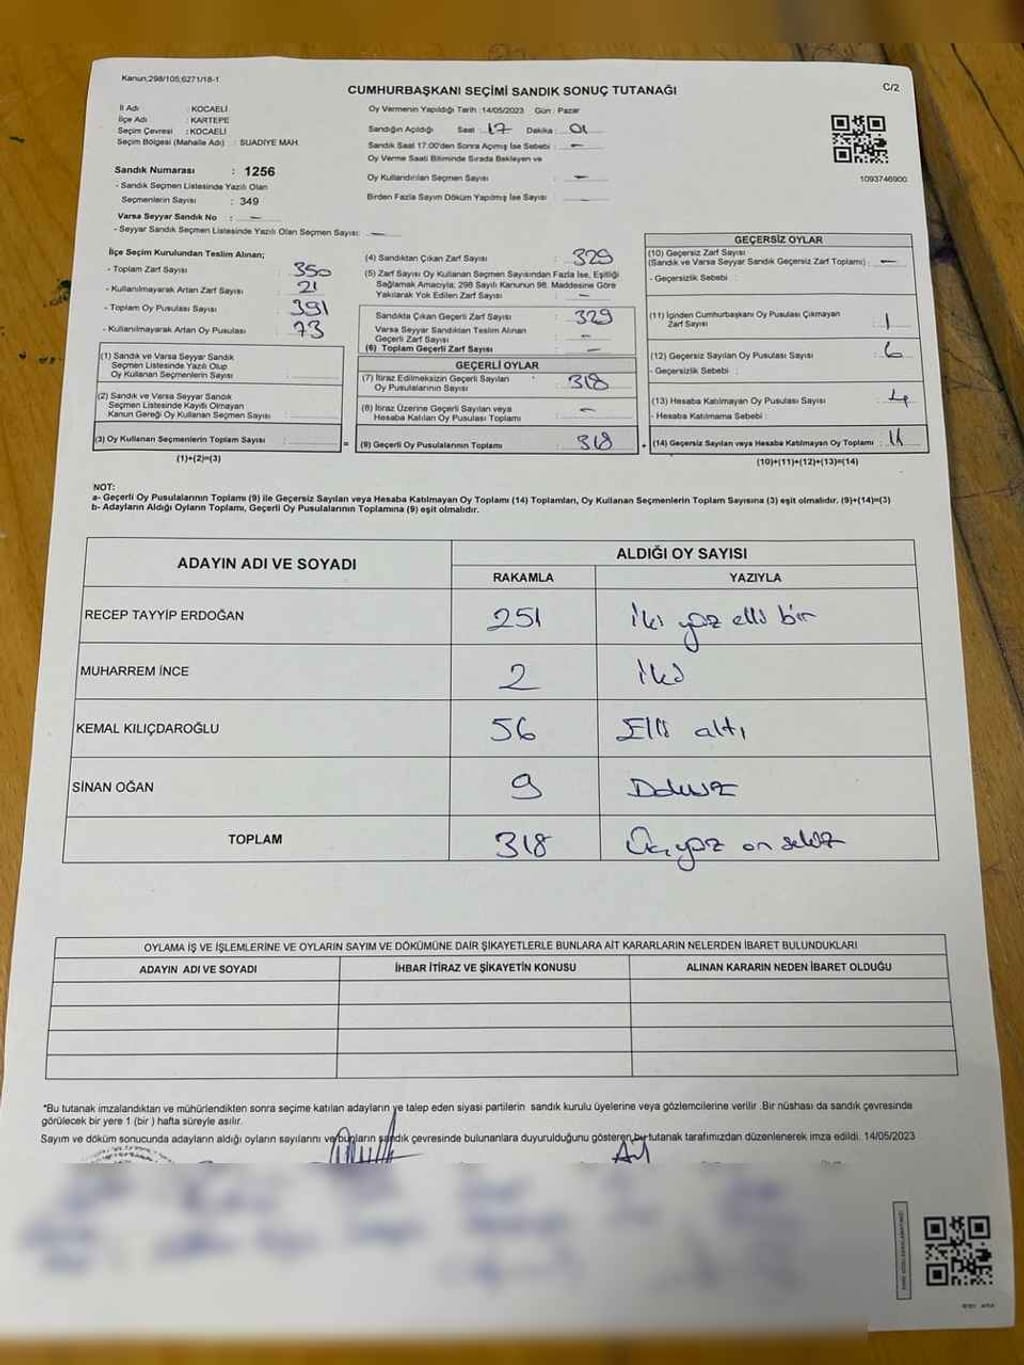 Kanun;298/105;6271/18-1
CUMHURBAŞKANI SEÇİMİ SANDIK SONUÇ TUTANAĞI
C/2
İl Adı : KOCAELİ
İlçe Adı : KARTEPE
Seçim Çevresi : KOCAELİ
Seçim Bölgesi (Mahalle Adı) : SUADİYE MAH.
Sandık Numarası : 1256
- Sandık Seçmen Listesinde Yazılı Olan
Seçmenlerin Sayısı : 349
Varsa Seyyar Sandık No : —
- Seyyar Sandık Seçmen Listesinde Yazılı Olan Seçmen Sayısı: —
Oy Vermenin Yapıldığı Tarih :14/05/2023 Gün : Pazar
Sandığın Açıldığı Saat : 17 Dakika : 01
Sandık Saat 17.00'den Sonra Açımış İse Sebebi : —
Oy Verme Saati Bitiminde Sırada Bekleyen ve
Oy Kullandırılan Seçmen Sayısı : —
Birden Fazla Sayım Döküm Yapılmış İse Sayısı : —
1093746900
İlçe Seçim Kurulundan Teslim Alınan;
- Toplam Zarf Sayısı : 350
- Kullanılmayarak Artan Zarf Sayısı : 21
- Toplam Oy Pusulası Sayısı : 391
- Kullanılmayarak Artan Oy Pusulası : 73
(1) Sandık ve Varsa Seyyar Sandık
Seçmen Listesinde Yazılı Olup
Oy Kullanan Seçmenlerin Sayısı :
(2) Sandık ve Varsa Seyyar Sandık
Seçmen Listesinde Kayıtlı Olmayan
Kanun Gereği Oy Kullanan Seçmen Sayısı :
(3) Oy Kullanan Seçmenlerin Toplam Sayısı :
(1)+(2)=(3)
=
(4) Sandıktan Çıkan Zarf Sayısı : 329
(5) Zarf Sayısı Oy Kullanan Seçmen Sayısından Fazla İse, Eşitliği
Sağlamak Amacıyla; 298 Sayılı Kanunun 98. Maddesine Göre
Yakılarak Yok Edilen Zarf Sayısı : —
Sandıkta Çıkan Geçerli Zarf Sayısı : 329
Varsa Seyyar Sandıktan Teslim Alınan
Geçerli Zarf Sayısı : —
(6) Toplam Geçerli Zarf Sayısı : —
GEÇERLİ OYLAR
(7) İtiraz Edilmeksizin Geçerli Sayılan
Oy Pusulalarının Sayısı : 318
(8) İtiraz Üzerine Geçerli Sayılan veya
Hesaba Katılan Oy Pusulası Toplamı : —
(9) Geçerli Oy Pusulalarının Toplamı : 318
+
GEÇERSİZ OYLAR
(10) Geçersiz Zarf Sayısı
(Sandık ve Varsa Seyyar Sandık Geçersiz Zarf Toplamı) : —
- Geçersizlik Sebebi :
(11) İçinden Cumhurbaşkanı Oy Pusulası Çıkmayan
Zarf Sayısı : 1
(12) Geçersiz Sayılan Oy Pusulası Sayısı : 6
- Geçersizlik Sebebi :
(13) Hesaba Katılmayan Oy Pusulası Sayısı : 4
- Hesaba Katılmama Sebebi :
(14) Geçersiz Sayılan veya Hesaba Katılmayan Oy Toplamı : 11
(10)+(11)+(12)+(13)=(14)
NOT:
a- Geçerli Oy Pusulalarının Toplamı (9) ile Geçersiz Sayılan veya Hesaba Katılmayan Oy Toplamı (14) Toplamları, Oy Kullanan Seçmenlerin Toplam Sayısına (3) eşit olmalıdır. (9)+(14)=(3)
b- Adayların Aldığı Oyların Toplamı, Geçerli Oy Pusulalarının Toplamına (9) eşit olmalıdır.
ADAYIN ADI VE SOYADI ALDIĞI OY SAYISI
RAKAMLA YAZIYLA
RECEP TAYYİP ERDOĞAN 251 İki yüz elli bir
MUHARREM İNCE 2 İki
KEMAL KILIÇDAROĞLU 56 Elli altı
SİNAN OĞAN 9 Dokuz
TOPLAM 318 Üç yüz on sekiz
OYLAMA İŞ VE İŞLEMLERİNE VE OYLARIN SAYIM VE DÖKÜMÜNE DAİR ŞİKAYETLERLE BUNLARA AİT KARARLARIN NELERDEN İBARET BULUNDUKLARI
ADAYIN ADI VE SOYADI İHBAR İTİRAZ VE ŞİKAYETİN KONUSU ALINAN KARARIN NEDEN İBARET OLDUĞU
*Bu tutanak imzalandıktan ve mühürlendikten sonra seçime katılan adayların ve talep eden siyasi partilerin sandık kurulu üyelerine veya gözlemcilerine verilir .Bir nüshası da sandık çevresinde
görülecek bir yere 1 (bir ) hafta süreyle asılır.
Sayım ve döküm sonucunda adayların aldığı oyların sayılarını ve bunların sandık çevresinde bulunanlara duyurulduğunu gösteren bu tutanak tarafımızdan düzenlenerek imza edildi. 14/05/2023